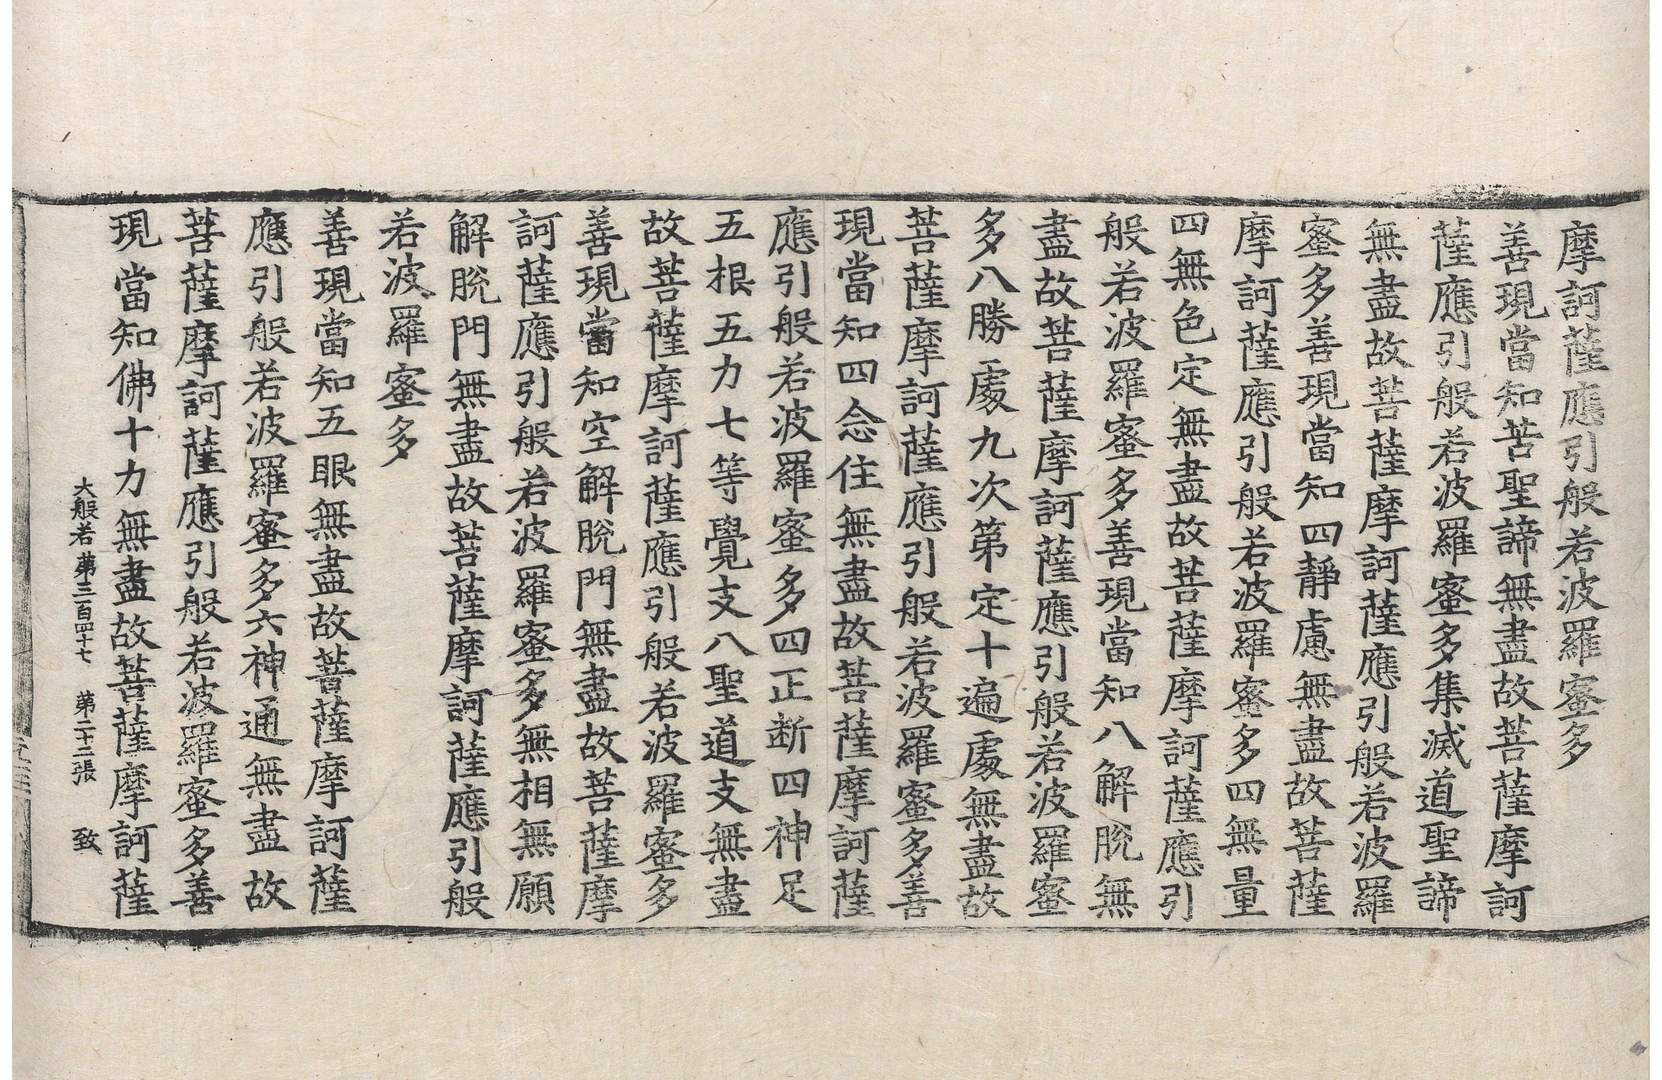 摩訶薩應引般若波羅蜜多
善現當知苦聖諦無盡故菩薩摩訶
薩應引般若波羅蜜多集滅道聖諦
無盡故菩薩摩訶薩應引般若波羅
蜜多善現當知四靜慮無盡故菩薩
摩訶薩應引般若波羅蜜多四無量
四無色定無盡故菩薩摩訶薩應引
般若波羅蜜多善現當知八解脫無
盡故菩薩摩訶薩應引般若波羅蜜
多八勝處九次第定十遍處無盡故
菩薩摩訶薩應引般若波羅蜜多善
現當知四念住無盡故菩薩摩訶薩
應引般若波羅蜜多四正断四神足
五根五力七等覺支八聖道支無盡
故菩薩摩訶薩應引般若波羅蜜多
善現當知空解脫門無盡故菩薩摩
訶薩應引般若波羅蜜多無相無願
解脫門無盡故菩薩摩訶薩應引般
若波羅蜜多
善現當知五眼無盡故菩薩摩訶薩
應引般若波羅蜜多六神通無盡故
菩薩摩訶薩應引般若波羅蜜多善
現當知佛十力無盡故菩薩摩訶薩
大般若第三百四十七 第二十二張 致